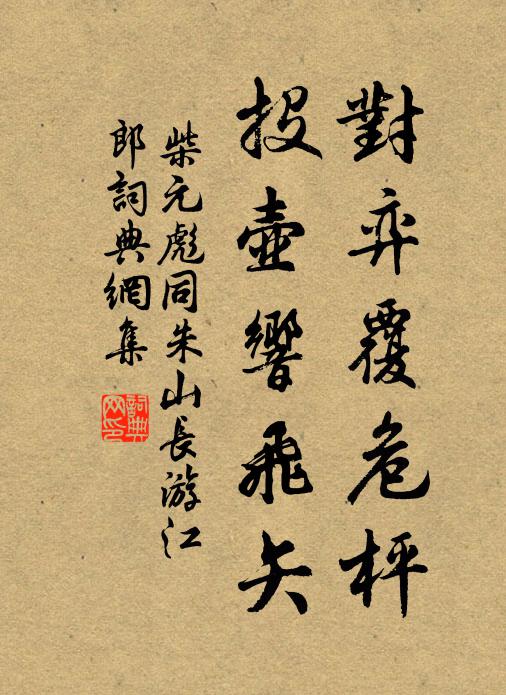 對弈覆危枰
投壺響飛矢
柴元彪同朱山長游江
郎詞典網集
詞典
网印